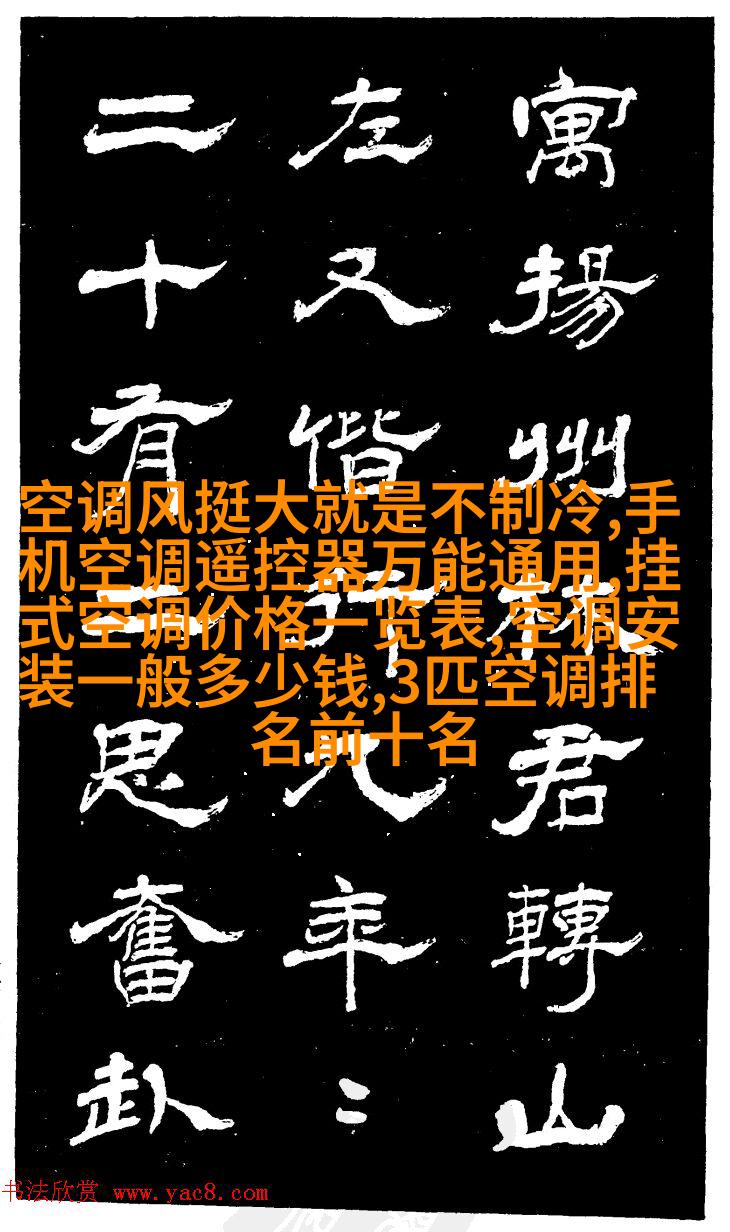 寓揚州林君轉山
左又偕行九年〻
二十有二思奮赴
空调风挺大就是不制冷,手
机空调遥控器万能通用,挂
式空调价格一览表,空调安
装一般多少钱,3匹空调排
名前十名
书法欣赏 www.yac8.com